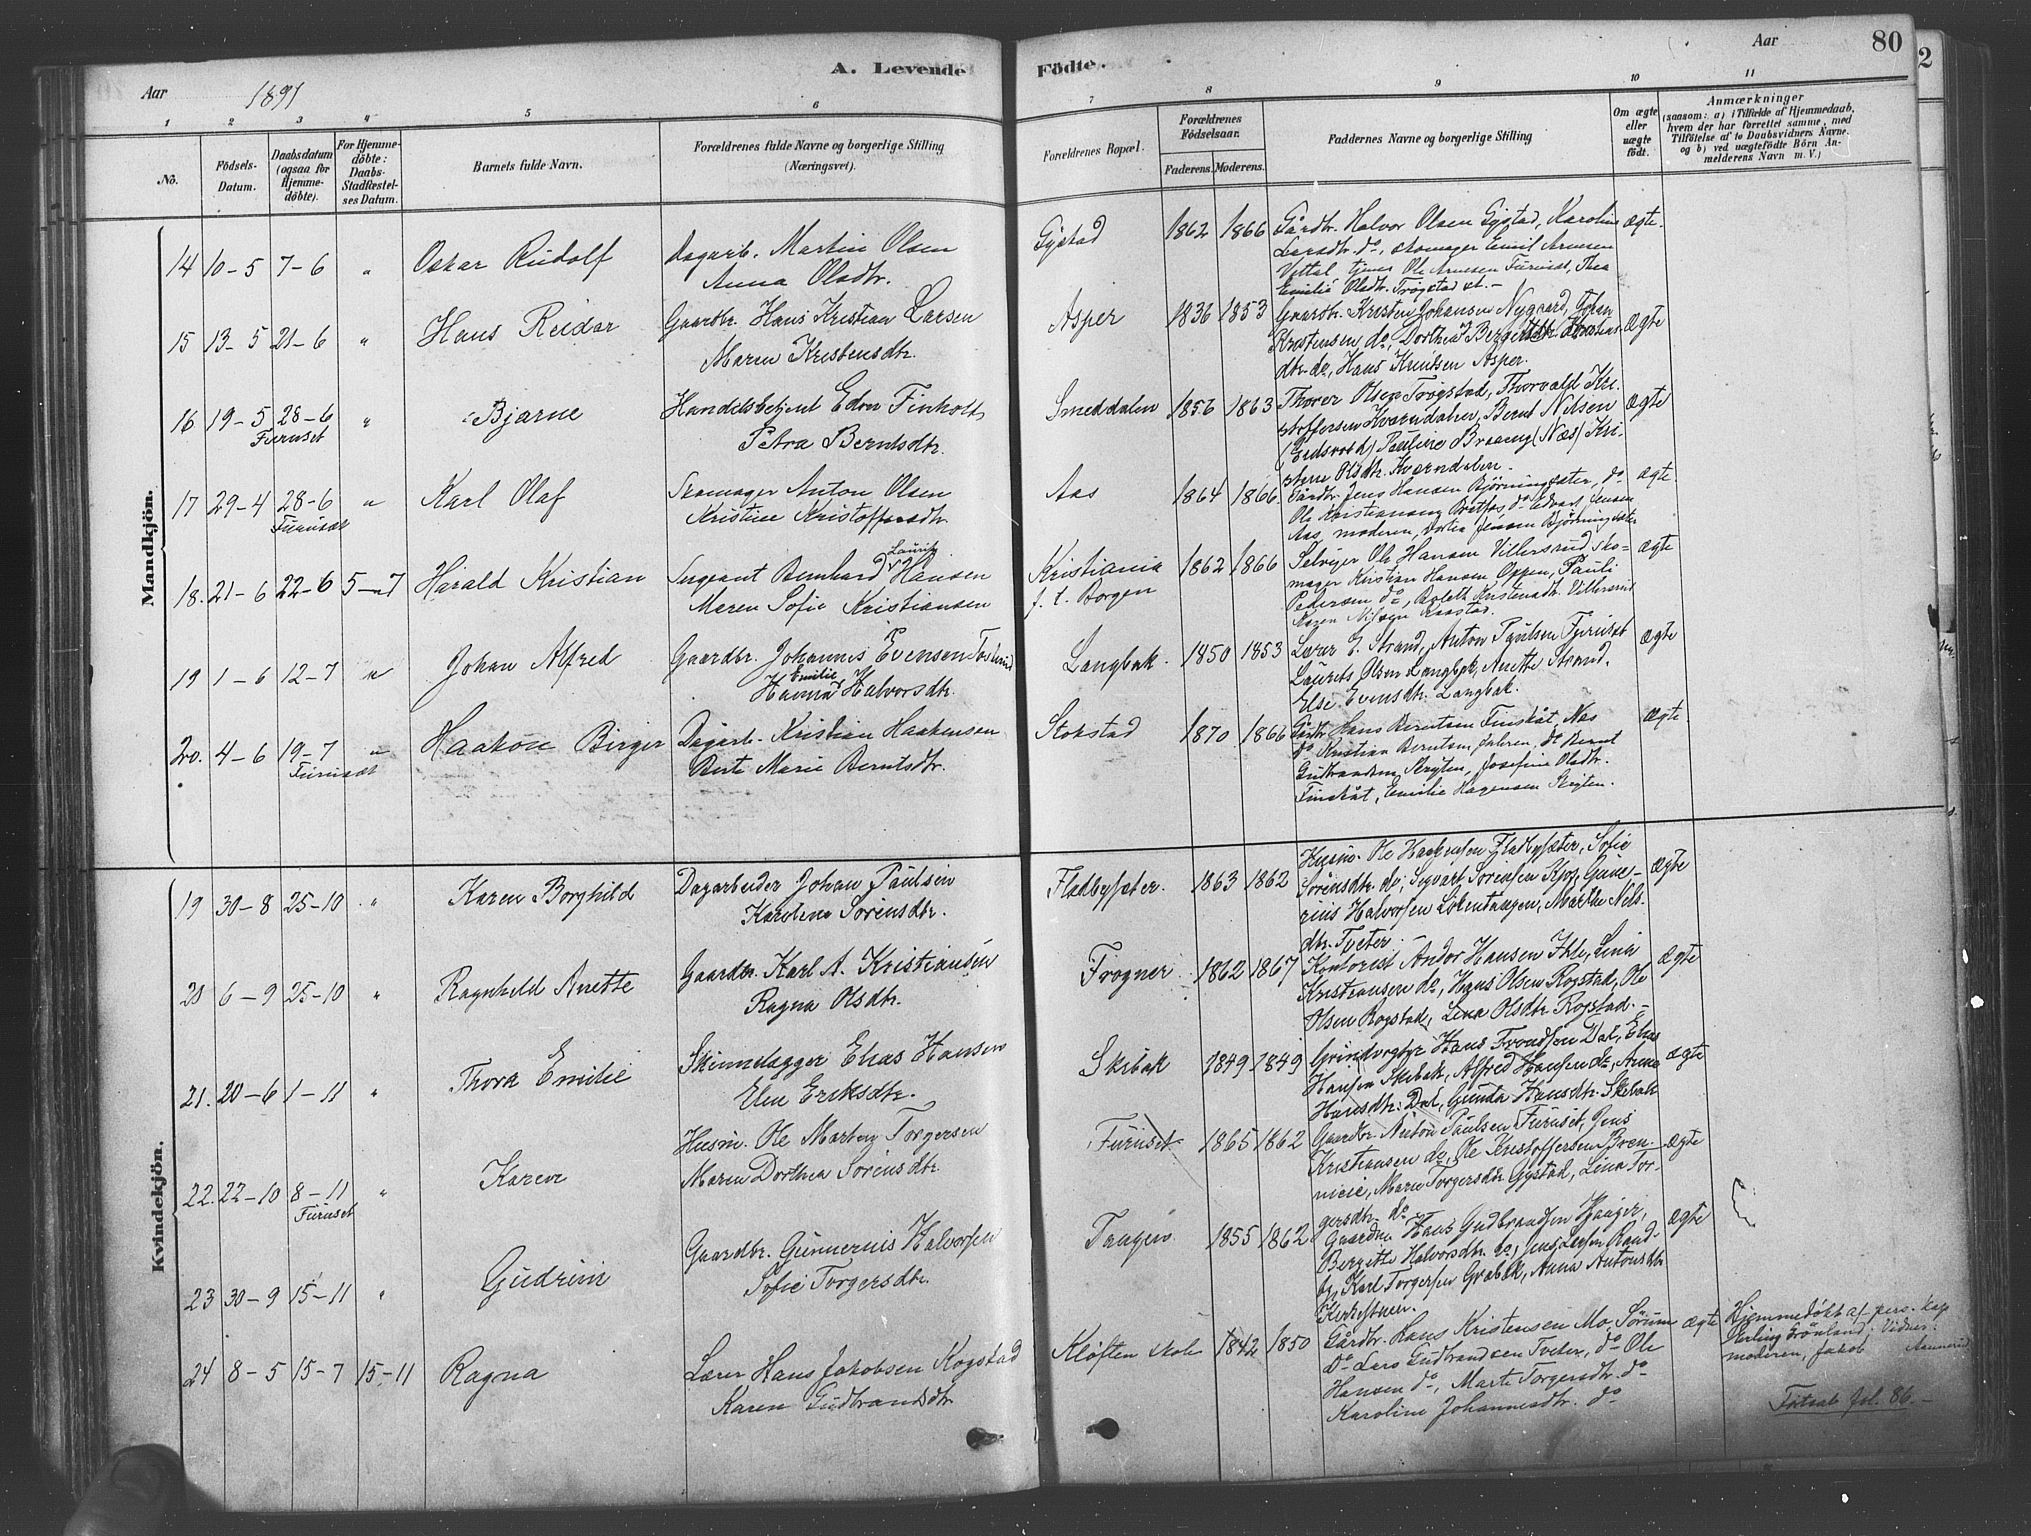 Aar 1891
A. Levende Födte.
Aar 80
1 2 3 4 5 6 7 8 9 10 11
No.
Födsels-Datum.
Daabsdatum (ogsaa for Hjemme-döbte).
For Hjemme-döbte: Daabs-Stadfæstel-ses Datum.
Barnets fulde Navn.
Forældrenes fulde Navne og borgerlige Stilling (Næringsvei).
Forældrenes Bopæl.
Forældrenes Födselsaar.
Faderens. Moderens.
Faddernes Navne og borgerlige Stilling
Om ægte eller uægte födt.
Anmærkninger
(saasom: a) i Tilfælde af Hjemmedaab, hvem der har forrettet samme, med Tilföielse af to Daabsvidners Navne. og b) ved uægtefödte Börn An-melderens Navn m. V.)
Mandkjön.
14 10-5 7-6 " Oskar Rudolf Dagarb. Martin Olsen Gystad 1862 1866 Gårdbr. Halvor Olsen Gystad, Karoline ægte.
Anna Olsdtr. Larsdtr. do, skomager Emil Arnesen
Vettal, tjener Ole Arnesen Furuset, Thea
Emilie Olsdtr. Trøgstad et. -
15 13-5 21-6 " Hans Reidar Gaardbr. Hans Kristian Larsen Asper 1836 1853 Gaardbr. Kristen Johansen Nygaard, Johan ægte
Maren Kristensdtr. Kristensen do, Dorthea
dtr. do, Hans Knutsen Asper.
16 19-5 28-6 " Bjarne Handelsbetjent Edvr Finholdt Smeddalen 1856 1863 Thorer Olsen Trøgstad, Thorvald Kri- ægte
Furuset Petra Berntsdtr. stoffersen Kverndalen, Bernt Nilsen
(Eidsvold) Pauline Braang (Næs) Kri-
stine Olsdtr. Kverndalen.
17 29-4 28-6 " Karl Olaf Skomager Anton Olsen Aas 1864 1866. Gårdbr. Jens Hansen Bjørningsæter, do ægte.
Furuset Kristine Kristoffersdtr. Ole Kristiansen do Edvart Jensen
Aas, moderen, Dortea Jensen Bjørningsæter
18. 21-6 22-6 5-7 Harald Kristian Sergeant Bernhard Lauritz Hansen Kristiania 1862 1866 Selveier Ole Hansen Villersrud, Sko- ægte
Maren Sofie Kristiansen f. t. Borgen mager Kristian Hansen Oppen, Pauli
Pedersen do, Bolett Kristensdtr. Villersrud
Karen Nilsen Kaastad.
19 1-6 12-7 " Johan Alfred Gaardbr. Johannes Evensen Langbak. 1850 1853 Lærer E. Strand, Anton Paulsen Furuset ægte
Hanna Emilie Halvorsdtr. Laurits Olsen Langbak, Anette Strand.
Else Evensdtr. Langbak.
20. 4-6 19-7 " Haakon Birger Dagarb. Kristian Haakensen Stokstad 1870 1866 Gårdbr. Hans Berntsen Finståt, Næs ægte
Furuset Berte Marie Berntsdtr. do Kristian Berntsen Jahren, do Bernt
Gudbrandsen Skryten, Josefine Olsdtr.
Finståt, Emilie Hagensen Skryten.
Kvindekjön.
19 30-8 25-10 " Karen Borghild Dagarbeider Johan Paulsen Fladbysæter. 1863 1862 Husm. Ole Haagensen Fladbysæter, Sofie ægte
Karoline Sørensdtr. Sørensdtr. do, Sigvart Sørensen Kjos, Gune-
rius Halvorsen Løkentangen, Marthe Nils-
dtr. Tveter.
20 6-9 25-10 " Ragnhild Anette Gaardbr. Karl A. Kristiansen Frogner 1862 1867 Kontorist Andor Hansen Ihle, Lina ægte
Ragna Olsdtr. Kristiansen do, Hans Olsen Rogstad, Ole
Olsen Rogstad, Lina Olsdtr. Rogstad.-
21. 20-6 1-11 " Thora Emilie Skindlægger Elias Hansen Skibak 1849 1849 Hans Trondsen Dal, Elias ægte
Elen Eriksdtr. Hansen Skibak, Alfred Hansen do, Anne
Hansdtr. Dal, Gunda Hansdtr. Skibak
22. 22-10 8-11 " Karen Husm. Ole Torgersen Furuset 1865 1862 Gaardbr. Anton Paulsen Furuset, Jens ægte
Furuset Maren Dorthea Sørensdtr. Kristiansen do, Ole Kristoffersen Bren-
Maren Torgersdtr. Gystad, Lina Tor-
gersdtr. do
23 30-9 15-11 " Gudrun Gaardbr. Gunnerius Halvorsen Tangen 1855 1862 Gaardm. Hans Gudbrandsen Hauger, ægte
Sofie Torgersdtr. Bergitte Halvorsdtr. do, Jens Larsen Rand-
by, Karl Torgersen Grøbak, Anna Antonsdtr.
24 8-5 15-7 15-11 Ragna Lærer Hans Jakobsen Kogstad Kløften skole 1842 1850 Gårdbr. Hans Kristensen Mo, Sørum ægte Hjemmedøbt af pers. kap.
Karen Gudbrandsdtr. do Lars Gudbrandsen Tveter, do Ole Erling Grönland; Vidner:
Hansen do, Marte Torgersdtr. do moderen, Jakob
Karoline Johannesdtr. do Fortsat fol. 86.-